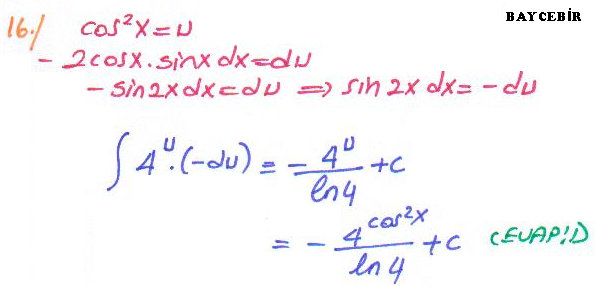 BAY CEBİR
16./ cos²x = u
- 2cosx.sinx dx = du
- sin2x dx = du ⇒ sin2x dx = - du
∫ 4ᵘ.(-du) = - 4ᵘ/ln4 + c
= - 4^(cos²x)/ln4 + c CEVAP:D